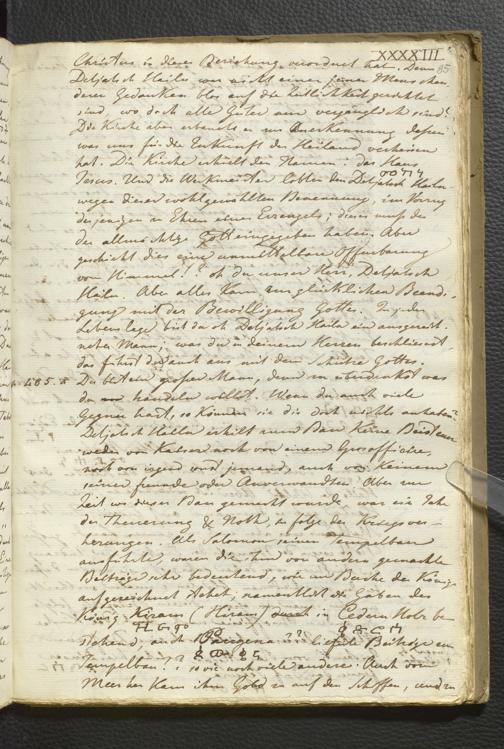 XXXXIII
85
Christus in dieser Beziehung verordnet hat. Denn
Detjatsch Hailu war nicht einer jener Menschen
deren Gedanken blos auf die Zeitlichkeit gerichtet
sind, wo doch alle Güter nur vergänglich sind!
Die Kirche aber erbaute er zur Anerkennung dessen
was uns für die Zukunft der Heiland verheissen
hat. Die Kirche erhielt den Namen: das Haus
Jesus. Und die Werkmeister lobten den Detjatsch Hailu
wegen dieser wohlgewählten Benennung, im Vorzug
derjenigen zu Ehren eines Erzengels; dieses muss
der allmächtige Gott eingegeben haben. Aber
geschieht dies eine Offenbarung
vom Himmel! oh du unser Herr, Detjatsch
Hailu. Aber alles kam zur glücklichen Beendi-
gung mit der Bewilligung Gottes. In jeder
Lebenslage bist du oh Detjatsch Hailu ein ausgezeich-
neter Mann; was du in deinem Herzen beschliessest
das führst du auch aus mit dem Schutze Gottes.
Du bist ein grosser Mann, denn du was
du handeln willst. Wenn du auch viele
Gegner hast, so können sie dir doch nichts anhaben!
Detjatsch Hailu erhielt zum Bau keine Beisteuer
weder vom Kaiser noch von einem Grosofficier,
noch von irgend jemand, auch von keinem
seiner Freunde oder Anverwandten. Aber zur
Zeit wo dieser Bau gemacht wurde war ein Jahr
der Theuerung & Noth, in folge der Kriegsver-
heerungen. Als Salomon seinen Tempelbau
ausführte, waren die ihm von andern gemachte
Beiträge sehr bedeutend, wie im Buche der Könige
aufgezeichnet steht; namentlich die Gaben des
König Kiram (Hiram) durch in Cedern Holz be-
stehend; auch ?? lieferte Beiträge zum
Tempelbau?? so wie noch viele andere. Auch vom
Meer her kam ihm Gold zu auf den Schiffen, und zu